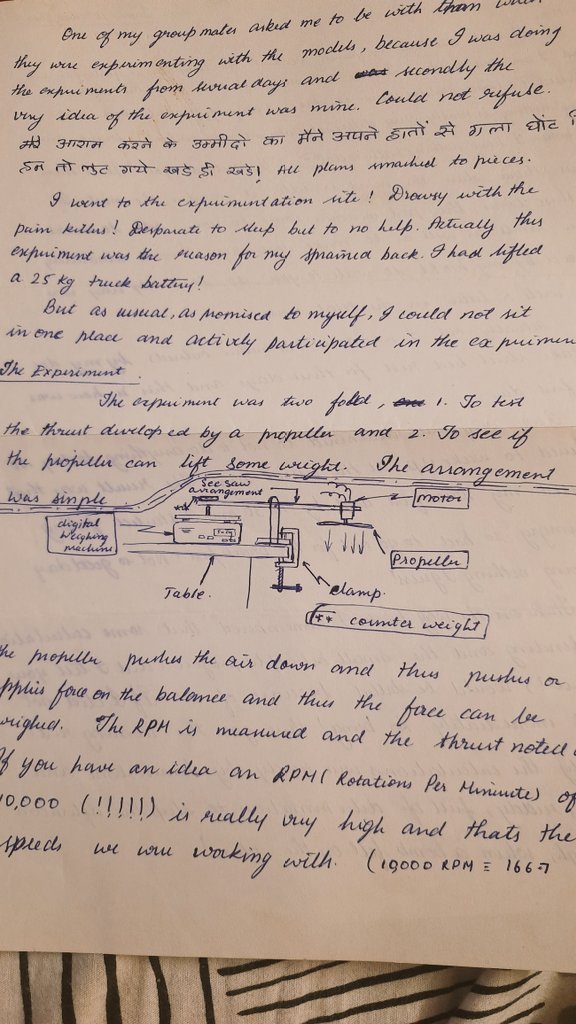 One of my group mates asked me to be with them when
they were experimenting with the models, because I was doing
the experiments from several days and secondly the
very idea of the experiment was mine. Could not refuse.
मेरे आराम करने के उम्मीदो का मैने अपने हातों से गला घोंट
हम तो लुट गये खडे ही खडे! All plans smashed to pieces.
I went to the experimentation site! Drowsy with the
pain killers! Desparate to sleep but to no help. Actually this
experiment was the reason for my sprained back. I had lifted
a 25 kg truck battery!
But as usual, as promised to myself, I could not sit
in one place and actively participated in the experiment
The Experiment.
The experiment was two fold, 1. To test
the thrust developed by a propeller and 2. To see if
the propeller can lift some weight. The arrangement
was simple
See Saw
arrangement
motor
digital
Weighing
machine
**
Propeller
Table.
clamp.
** counter weight
the propeller pushes the air down and thus pushes or
applies force on the balance and thus the force can be
weighed. The RPM is measured and the thrust noted
If you have an idea an RPM (Rotations Per Mininute) of
10,000 (!!!!!) is really very high and thats the
speeds we were working with. (10,000 RPM ≡ 166.7